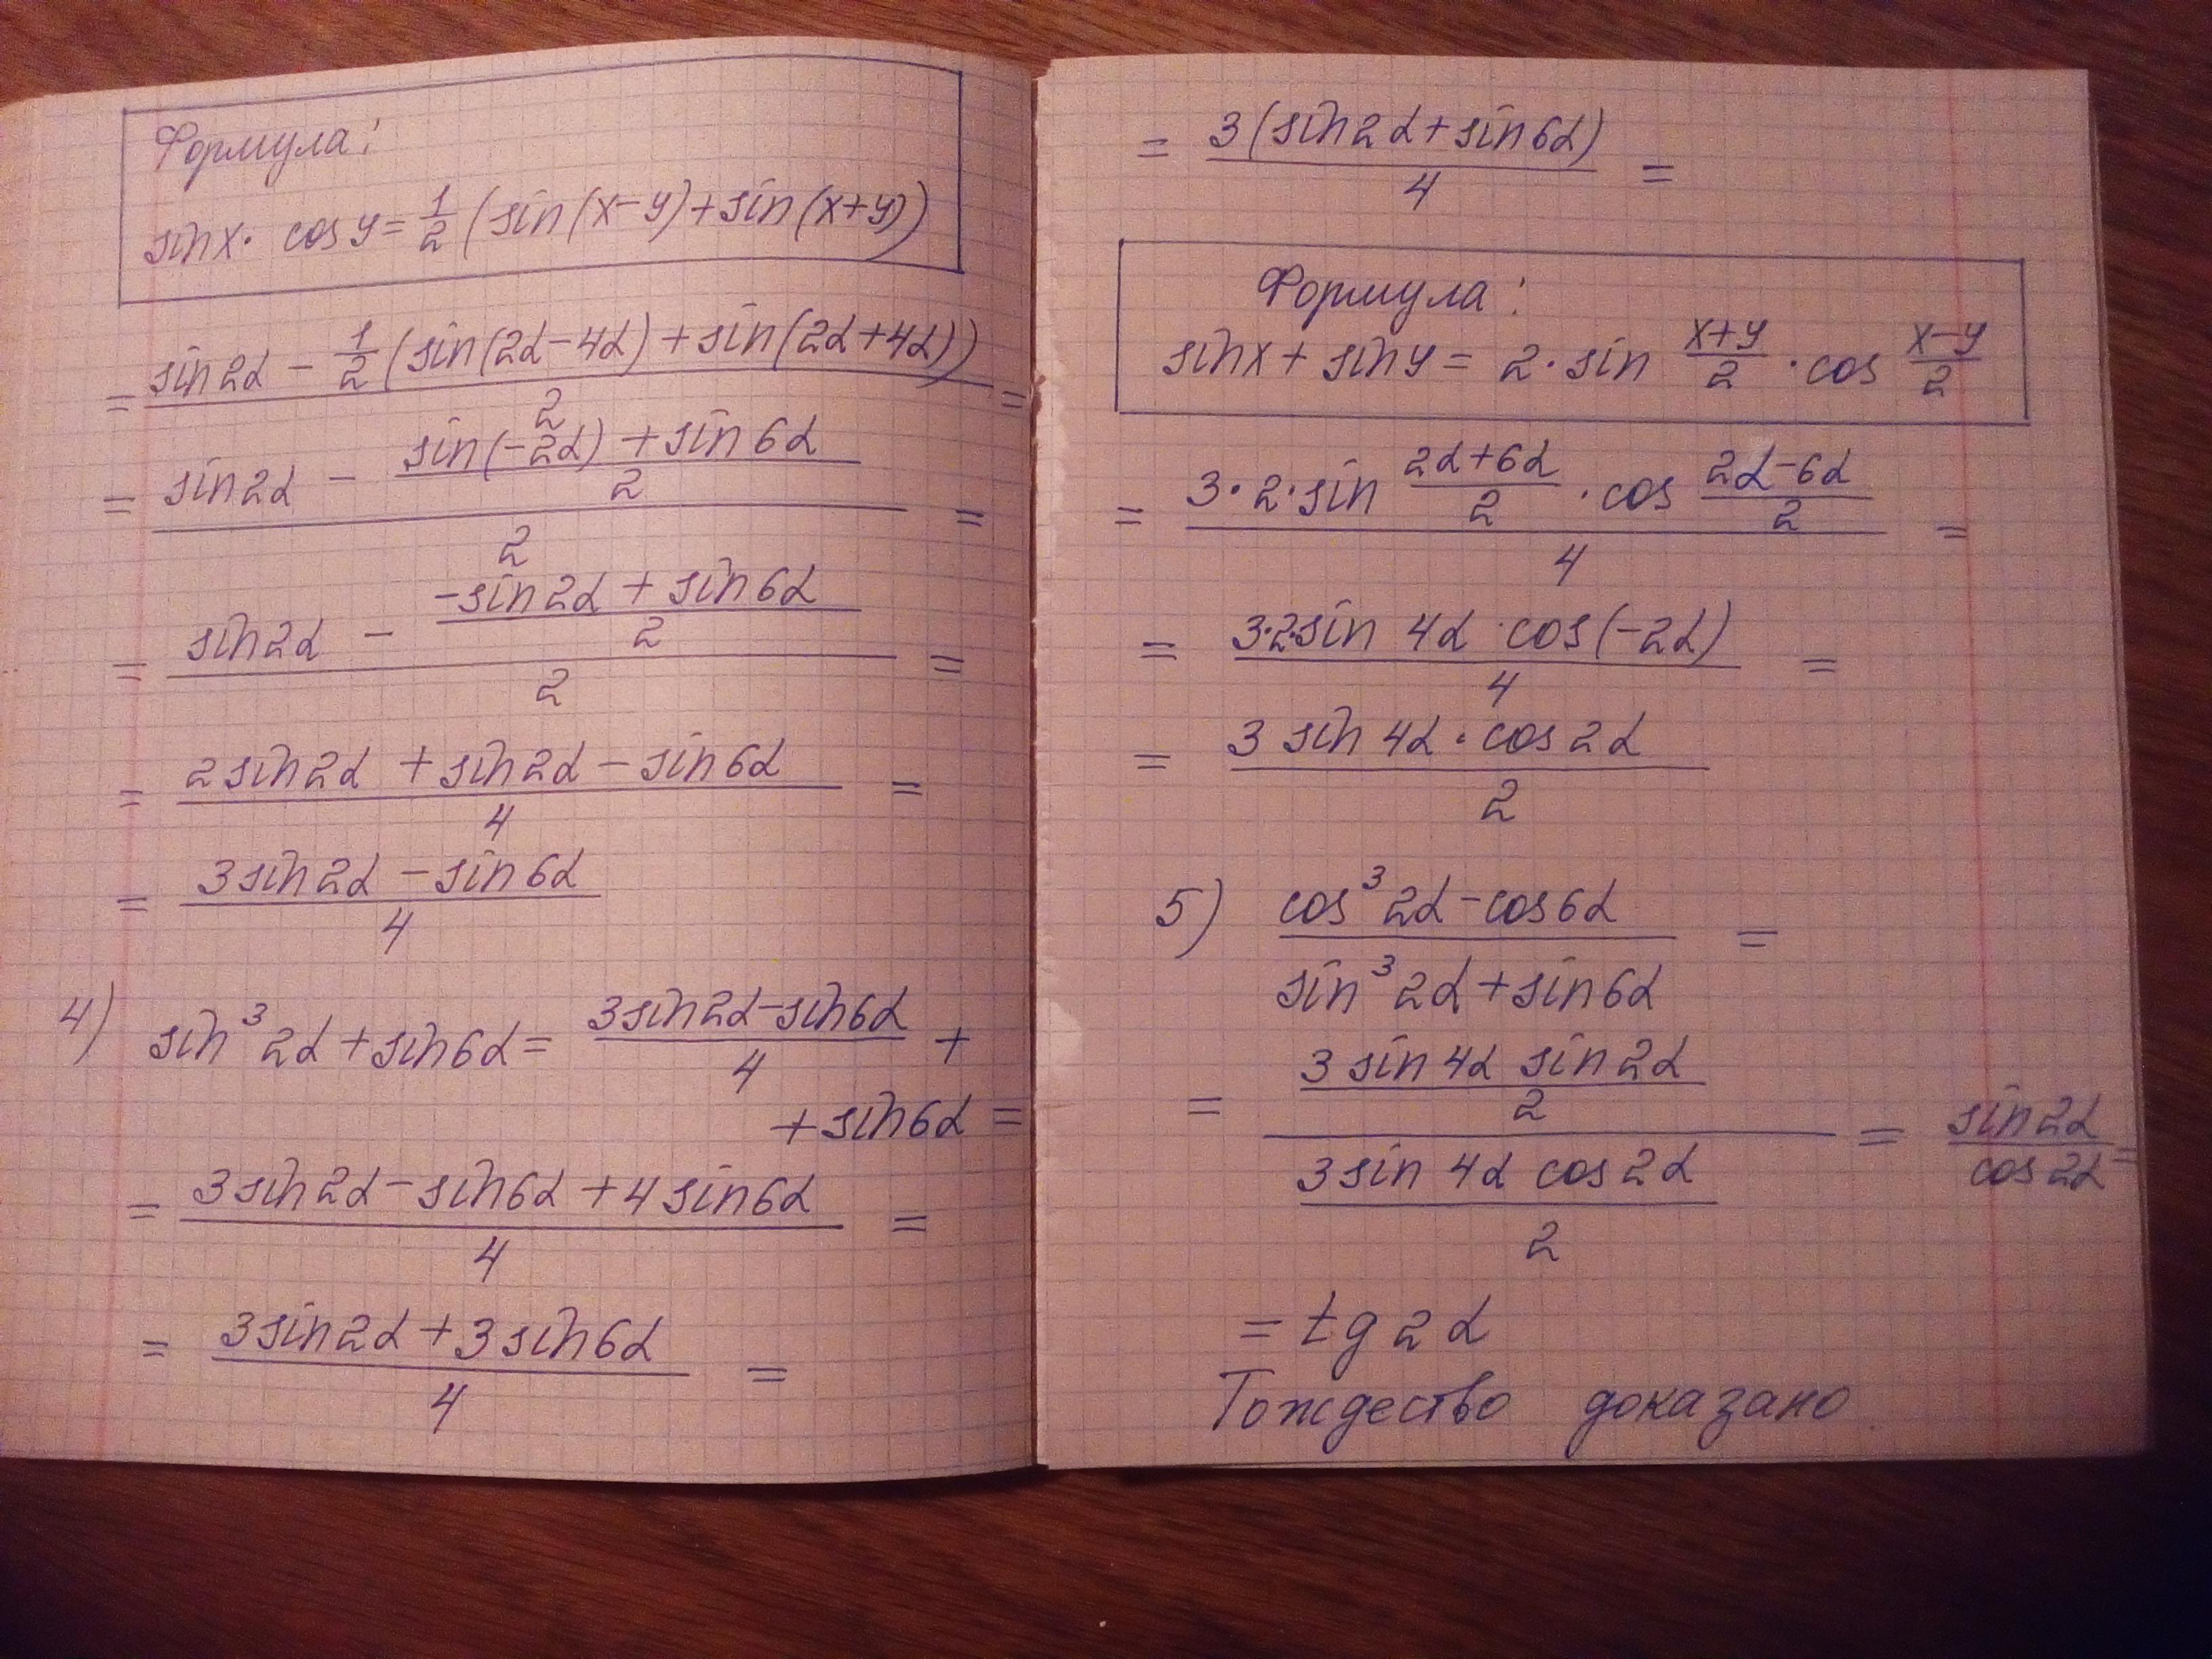 Формула:
sinx· cosy= 1/2 (sin(x-y)+sin(x+y))
= (sin2α - 1/2 (sin(2α-4α)+sin(2α+4α)))/2 =
= (sin2α - (sin(-2α)+sin6α)/2)/2 =
= (sin2α - (-sin2α+sin6α)/2)/2 =
= (2sin2α + sin2α - sin6α)/4 =
= (3sin2α - sin6α)/4
4) sin³2α+sin6α= (3sin2α-sin6α)/4 +
+sin6α =
= (3sin2α-sin6α+4sin6α)/4 =
= (3sin2α+3sin6α)/4 =
= 3(sin2α+sin6α)/4 =
Формула:
sinx+siny= 2·sin (x+y)/2 ·cos (x-y)/2
= (3·2·sin (2α+6α)/2 ·cos (2α-6α)/2)/4 =
= (3·2·sin 4α ·cos(-2α))/4 =
= (3 sin 4α · cos 2α)/2
5) (cos³2α-cos6α)/(sin³2α+sin6α) =
= ((3 sin 4α sin 2α)/2)/((3 sin 4α cos 2α)/2) = (sin 2α)/(cos 2α) =
= tg 2α
Тождество доказано